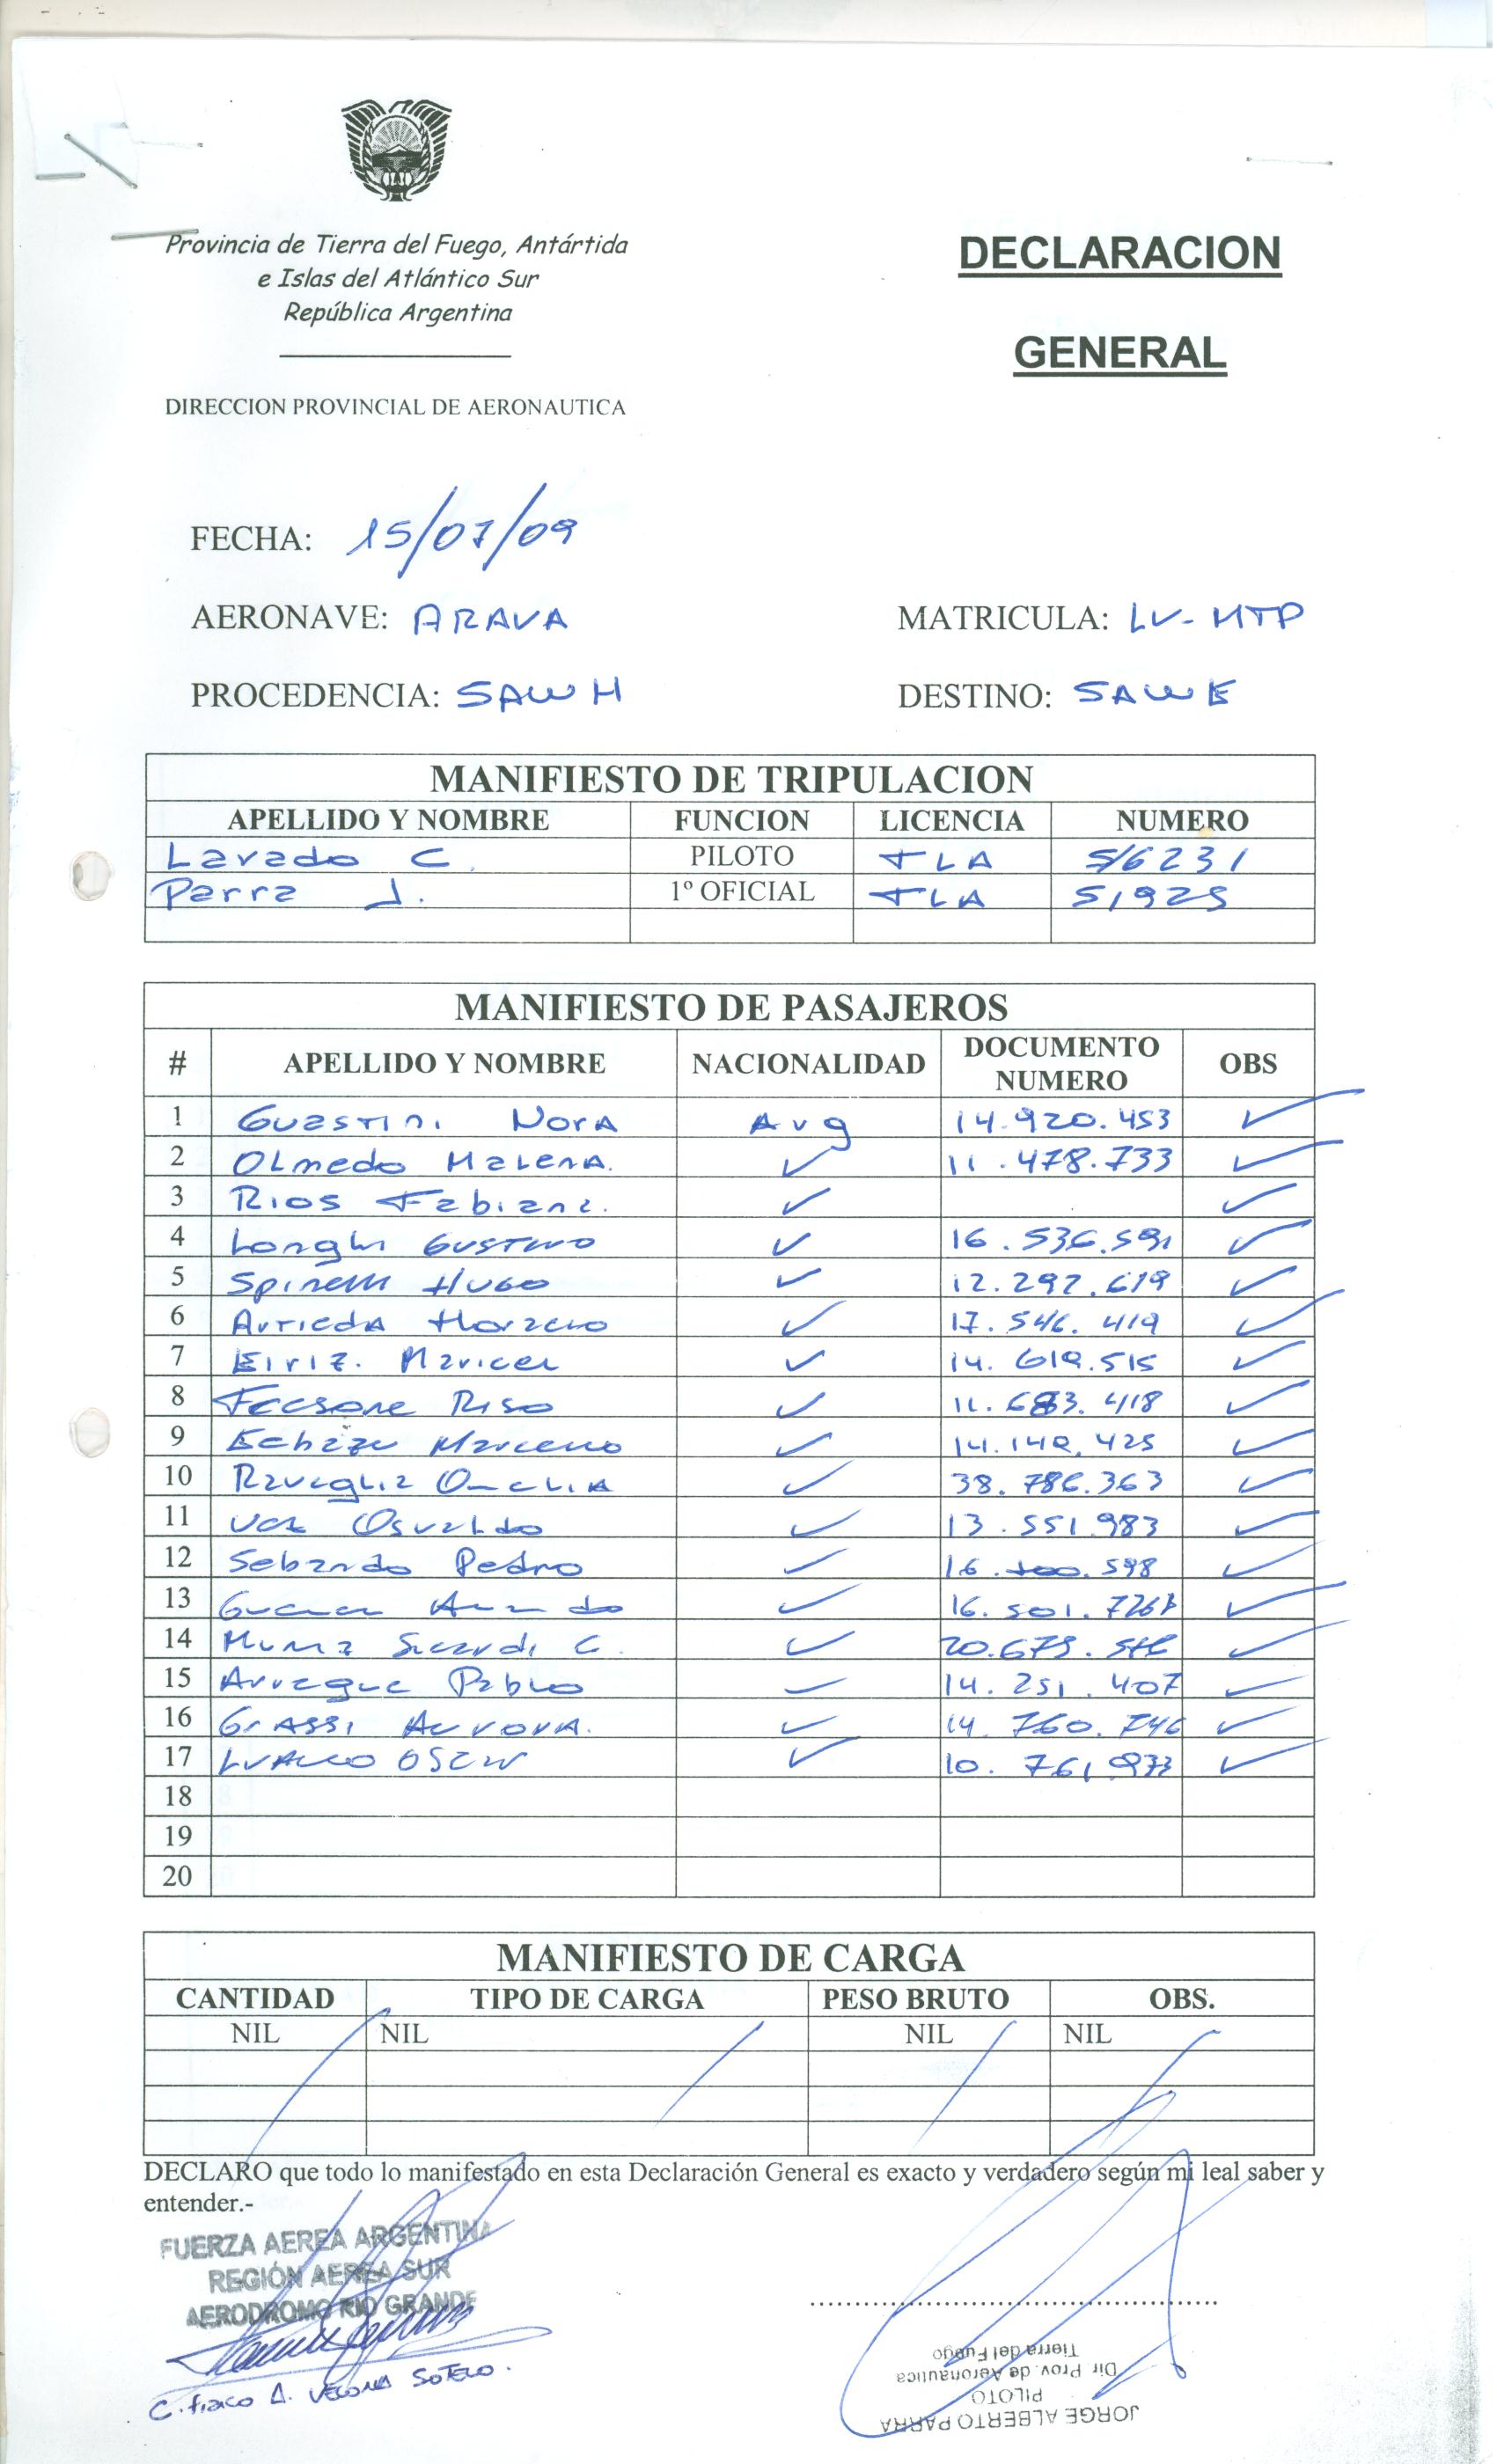 Provincia de Tierra del Fuego, Antártida
e Islas del Atlántico Sur
República Argentina
DIRECCION PROVINCIAL DE AERONAUTICA
DECLARACION
GENERAL
FECHA: 15/07/09
AERONAVE: ARAVA MATRICULA: LV-MTP
PROCEDENCIA: SAWH DESTINO: SAWE
MANIFIESTO DE TRIPULACION
APELLIDO Y NOMBRE FUNCION LICENCIA NUMERO
Lavado C. PILOTO TLA 5/6231
Parra J. 1º OFICIAL TLA 51925
MANIFIESTO DE PASAJEROS
# APELLIDO Y NOMBRE NACIONALIDAD DOCUMENTO NUMERO OBS
1 Guastini Nora Arg 14.920.453 ✓
2 Olmedo Malena. ✓ 11.478.733 ✓
3 Rios Fabiana. ✓ ✓
4 Longhi Gustavo ✓ 16.536.591 ✓
5 Spinelli Hugo ✓ 12.297.619 ✓
6 Arrieda Horacio ✓ 17.546.419 ✓
7 Eiriz. Maricel ✓ 14.619.515 ✓
8 Riso ✓ 11.683.418 ✓
9 Echazu Marcelo ✓ 14.140.425 ✓
10 Ravaglia Onelia ✓ 38.786.363 ✓
11 Osvaldo ✓ 13.551.983 ✓
12 Sebando Pedro ✓ 16.100.598 ✓
13 ✓ 16.501. ✓
14 C. ✓ 20.673. ✓
15 Pablo ✓ 14.251.407 ✓
16 Grassi Aurora. ✓ 14.760.746 ✓
17 ✓ 10.761.933 ✓
18
19
20
MANIFIESTO DE CARGA
CANTIDAD TIPO DE CARGA PESO BRUTO OBS.
NIL NIL NIL NIL
DECLARO que todo lo manifestado en esta Declaración General es exacto y verdadero según mi leal saber y
entender.-
FUERZA AEREA ARGENTINA
REGIÓN AEREA SUR
AERODROMO RIO GRANDE
A. SOTELO.
JORGE ALBERTO PARRA
PILOTO
Dir Prov. de Aeronautica
Tierra del Fuego